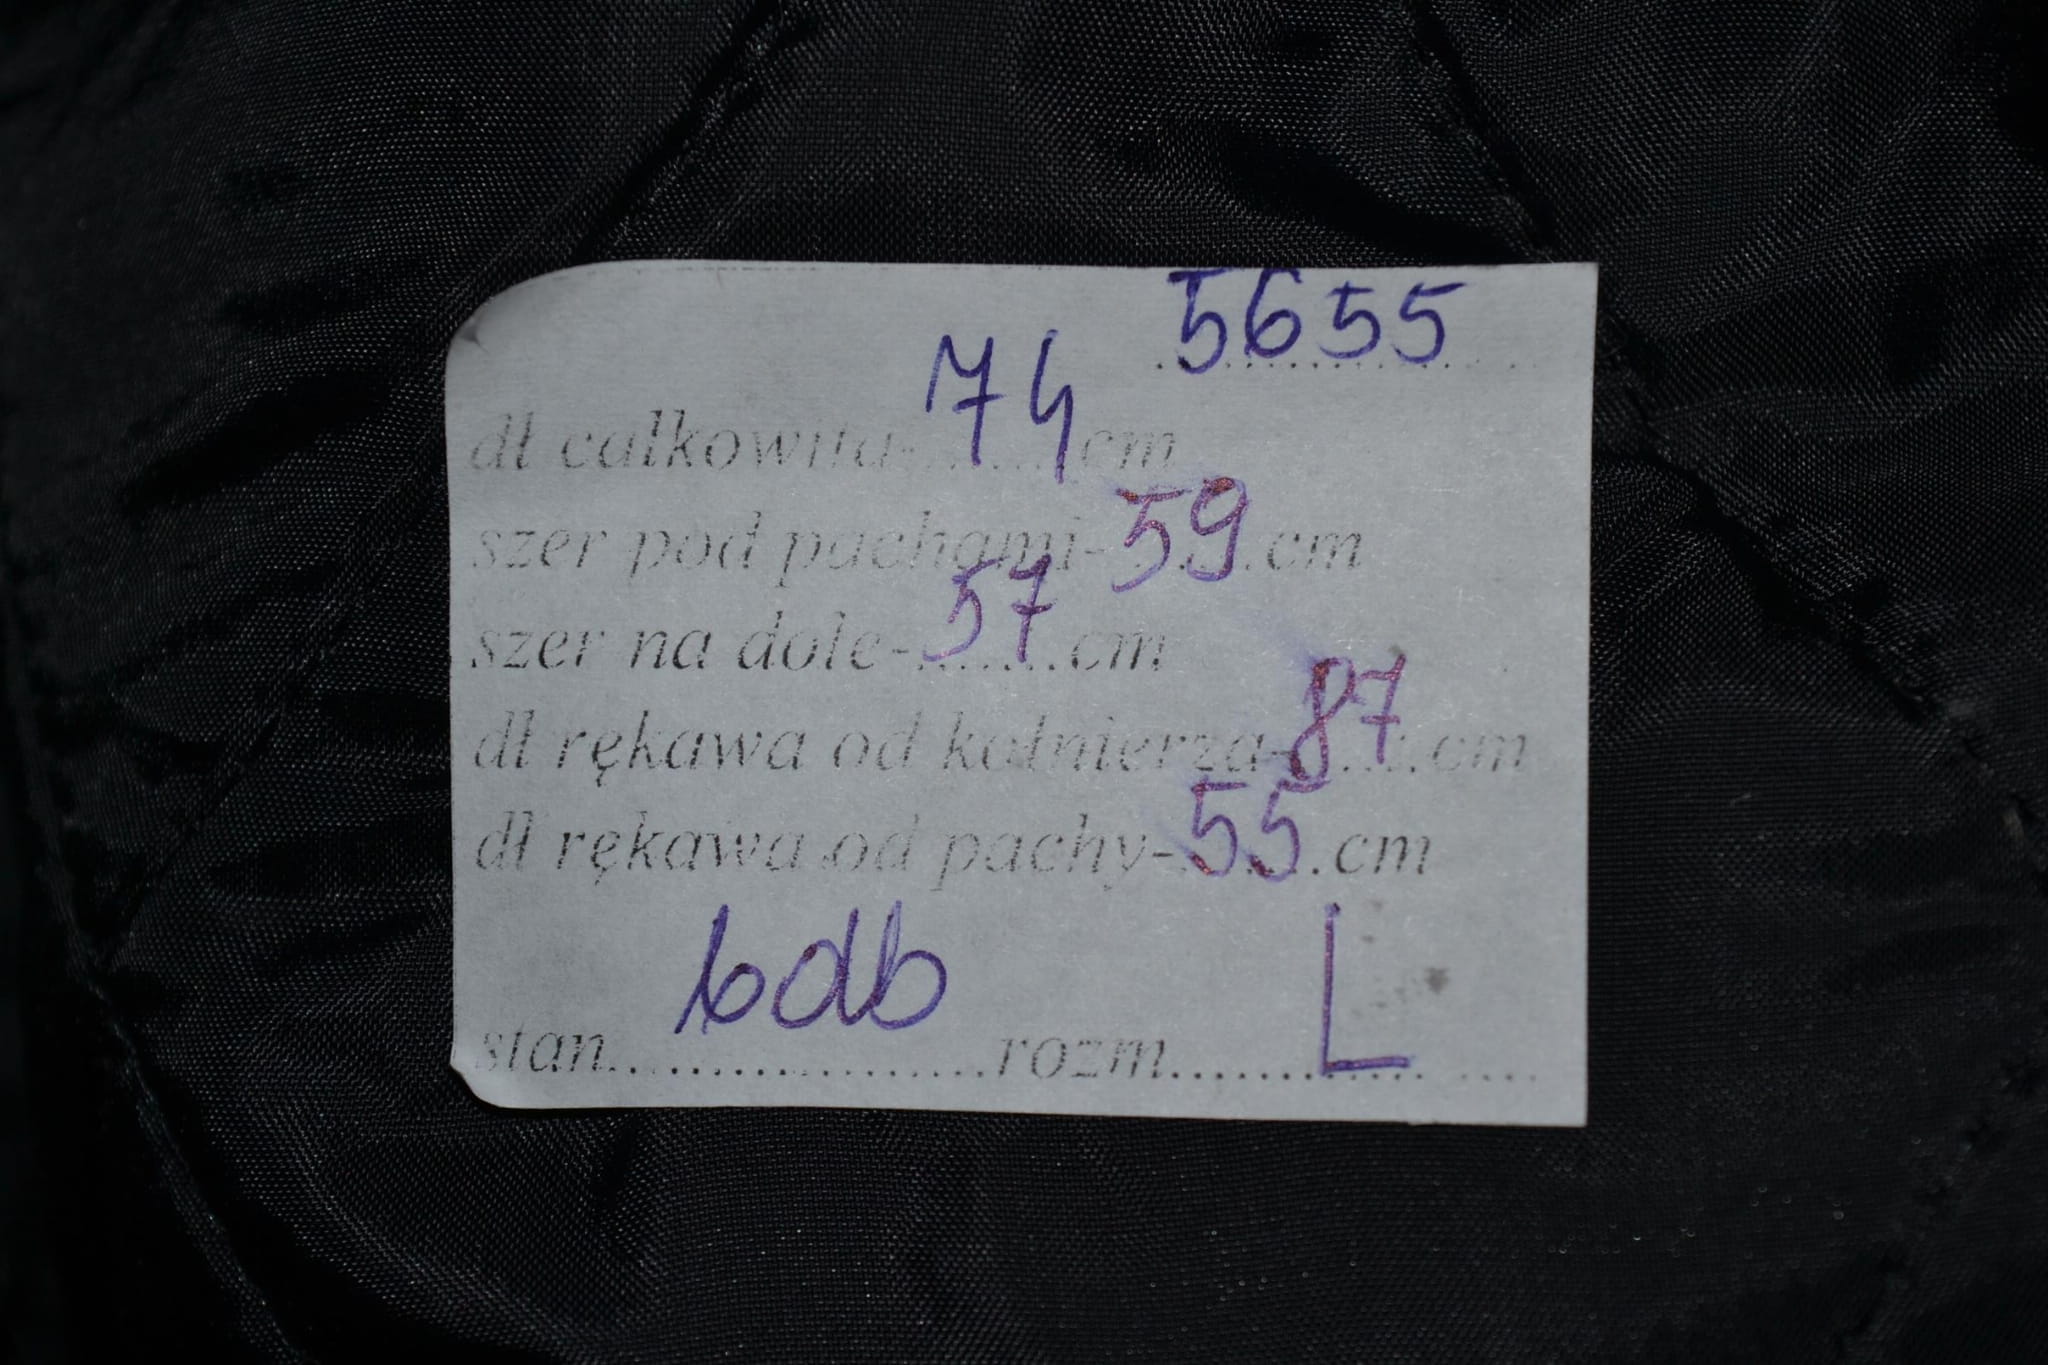 5655
dł całkowita-74cm
szer pod pachami-59.cm
szer na dole-57...cm
dł rękawa od kołnierza-87...cm
dł rękawa od pachy-55.cm
stan bdb rozm L